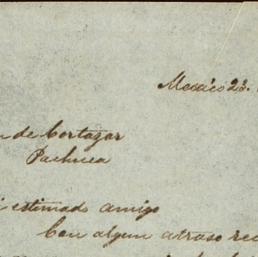 Mexico 23.
de Cortazar
Pachuca
estimado amigo
Con algun atraso